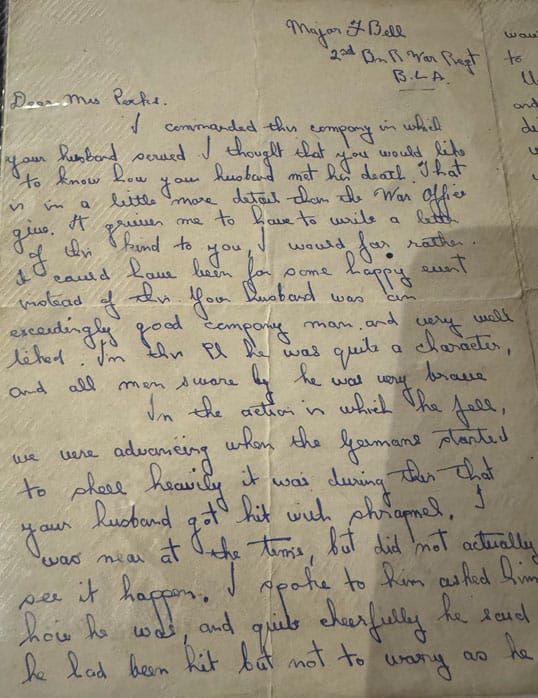 Major F Bell
2nd Bn R War Regt
B.L.A.
Dear Mrs
I commanded this company in which
your husband served I thought that you would like
to know how you husband met his death. That
is in a little more detail than the War Office
give. It grieves me to have to write a letter
of this kind to you, I would far rather
it could have been for some happy event
instead of this. Your husband was an
exceedingly good company man, and very well
liked. In this Pl he was quite a character,
and all men swore by he was very brave
In the action in which he fell,
we were advancing when the Germans started
to shell heavily it was during this that
your husband got hit with shrapnel. I
was near at the time, but did not actually
see it happen. I spoke to him asked him
how he was, and quite cheerfully he said
he had been hit but not to worry as he
to
and